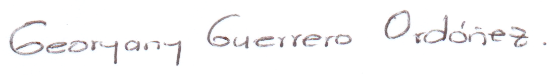 Georyany Guerrero Ordóñez.